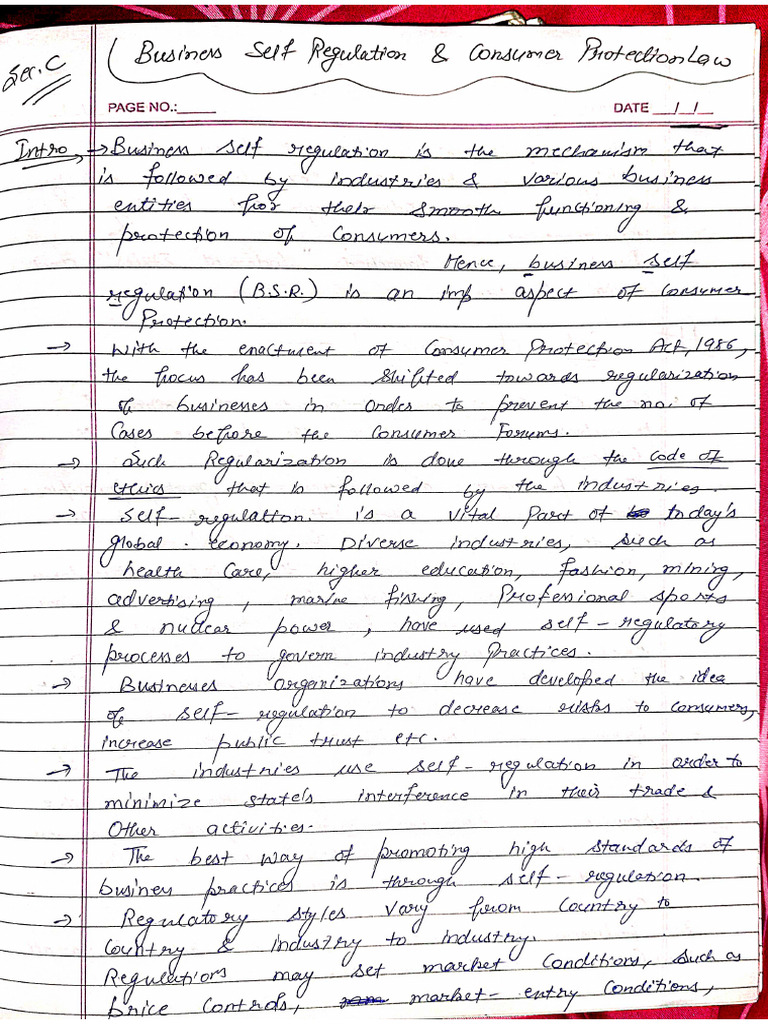 Sec. C
Business Self Regulation & Consumer Protection Law
PAGE NO.:
DATE / /
Intro → Business self regulation is the mechanism that
is followed by industries & various business
entities for their smooth functioning &
protection of Consumers.
Hence, business self
regulation (B.S.R.) is an imp aspect of Consumer
Protection.
→ With the enactment of Consumer Protection Act, 1986,
the focus has been shifted towards regularization
of businesses in order to prevent the no. of
Cases before the Consumer Forums.
→ Such Regularization is done through the code of
ethics that is followed by the industries.
→ Self-regulation. is a vital part of today's
global economy. Diverse industries, such as
health Care, higher education, fashion, mining,
advertising, marine fishing, Professional sports
& nuclear power, have used self-regulatory
processes to govern industry Practices.
→ Businesses organizations have developed the idea
of self-regulation to decrease risks to consumers,
increase public trust etc.
→ The industries use self-regulation in order to
minimize state's interference in their trade &
Other activities.
→ The best way of promoting high standards of
business practices is through self-regulation.
→ Regulatory styles vary from Country to
Country & industry to industry.
Regulations may set market Conditions, such as
price Controls, market-entry Conditions,